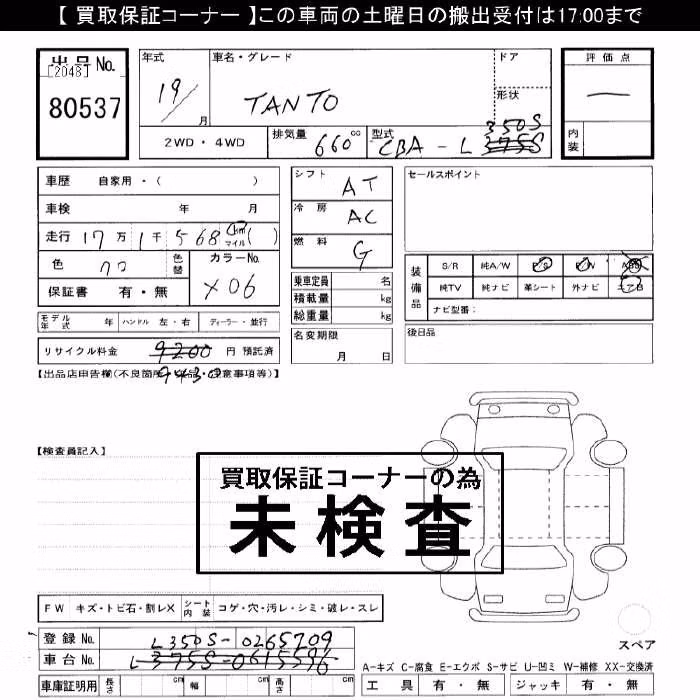 【 買取保証コーナー 】この車両の土曜日の搬出受付は17:00まで
出品No.
[2048]
80537
年式
19/
月
車名・グレード
TANTO
ドア
形状
2WD ・ 4WD
排気量
660 cc
型式
CBA - L 375S
350S
評価点
—
内装
車歴 自家用・( )
車検 年 月
走行 17万1千568 (km マイル)( )
色 クロ
色替
カラーNo.
X06
保証書 有・無
シフト AT
冷房 AC
燃料 G
乗車定員 名
積載量 kg
総重量 kg
セールスポイント
装備品
S/R 純A/W P/S P/W ABS
純TV 純ナビ 革シート 外ナビ エアB
ナビ型番：
モデル年式 年 ハンドル 左・右 ディーラー・並行
リサイクル料金 9200 円 預託済
9430
名変期限
月 日
後日品
【出品店申告欄(不良箇所・欠品・注意事項等)】
【検査員記入】
買取保証コーナーの為
未検査
FW キズ・トビ石・割レX シート内装 コゲ・穴・汚レ・シミ・破レ・スレ
登録No. L350S-0265709
車台No. L375S-0615596
車庫証明用 長さ cm 幅 cm 高さ cm
スペア
A-キズ C-腐食 E-エクボ S-サビ U-凹ミ W-補修 XX-交換済
工具 有・無 ジャッキ 有・無